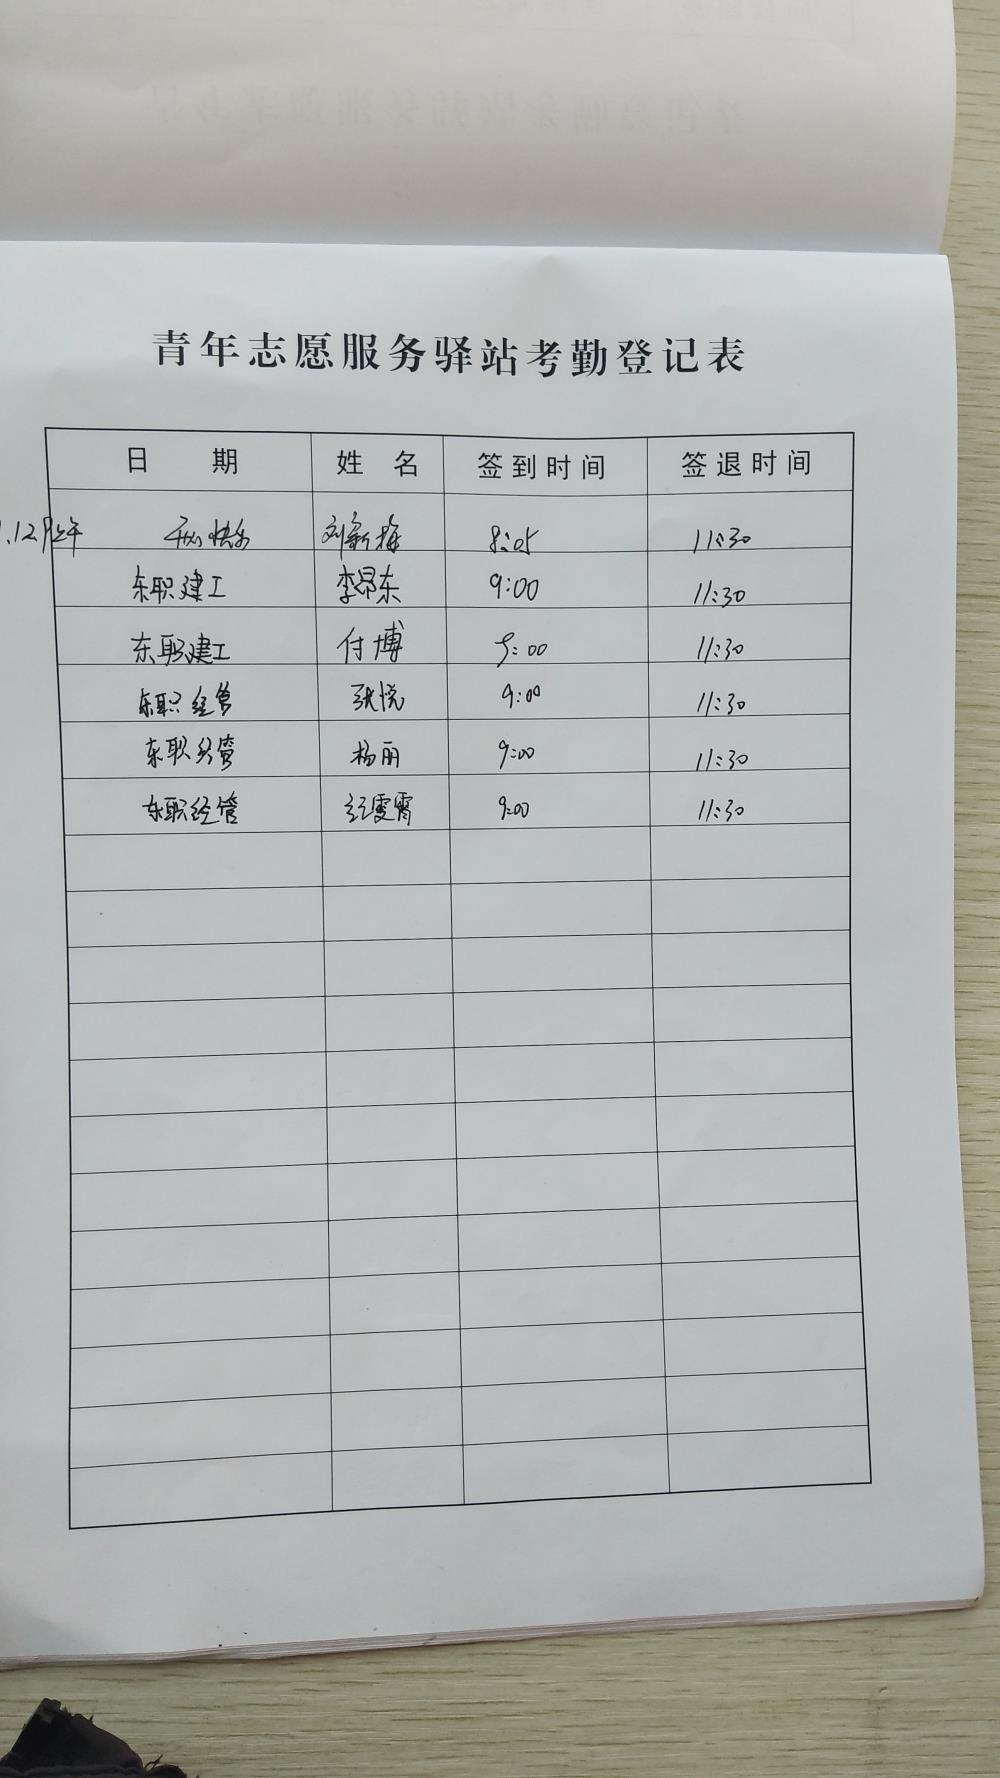 青年志愿服务驿站考勤登记表
日 期 姓 名 签到时间 签退时间
.12 上午 刘新梅 8:05 11:30
东职建工 李昂东 9:00 11:30
东职建工 付博 9:00 11:30
东职经管 张悦 9:00 11:30
东职经管 杨丽 9:00 11:30
东职经管 雯霄 9:00 11:30